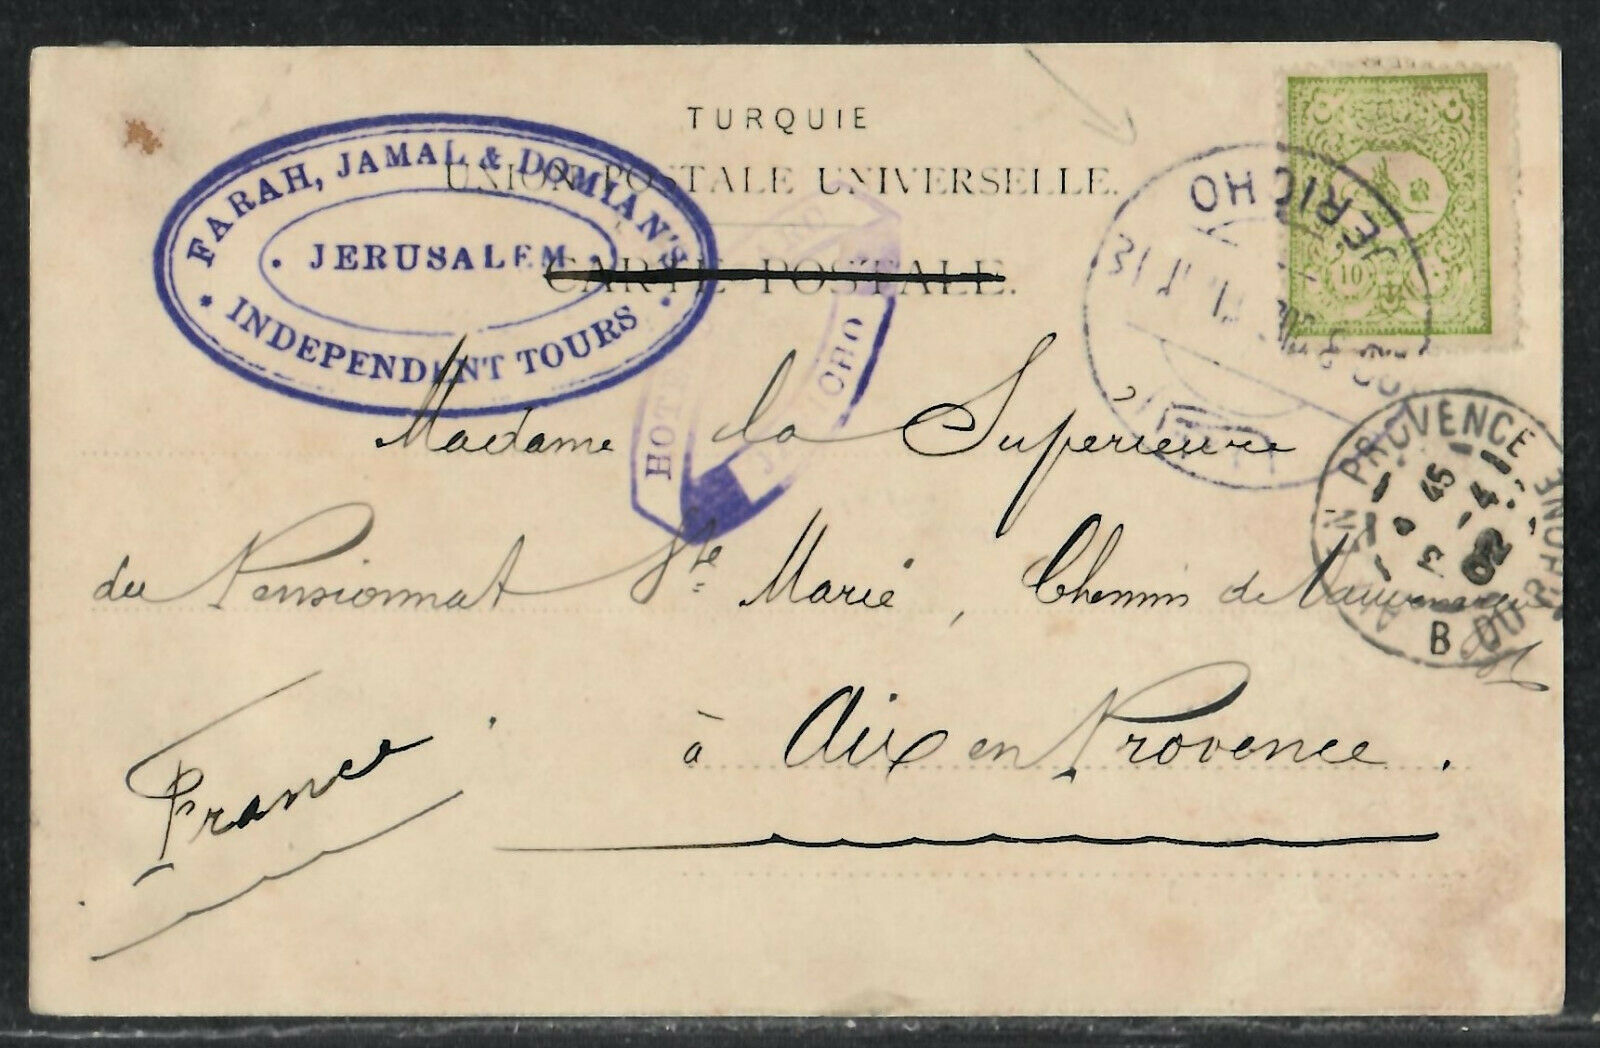 TURQUIE
UNION POSTALE UNIVERSELLE.
CARTE POSTALE.
FARAH, JAMAL & DOMIAN'S
JERUSALEM
INDEPENDENT TOURS
HOTEL
JERICHO
JERICHO
10
AIX EN PROVENCE
B. DU RHONE
45
-4
02
Madame la Supérieure
du Pensionnat Ste Marie, Chemin de
à Aix en Provence.
France